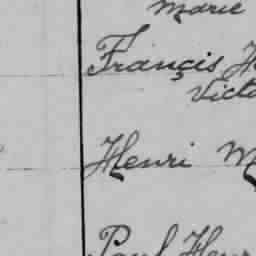 Marie
Françis
Henri
Paul Henr